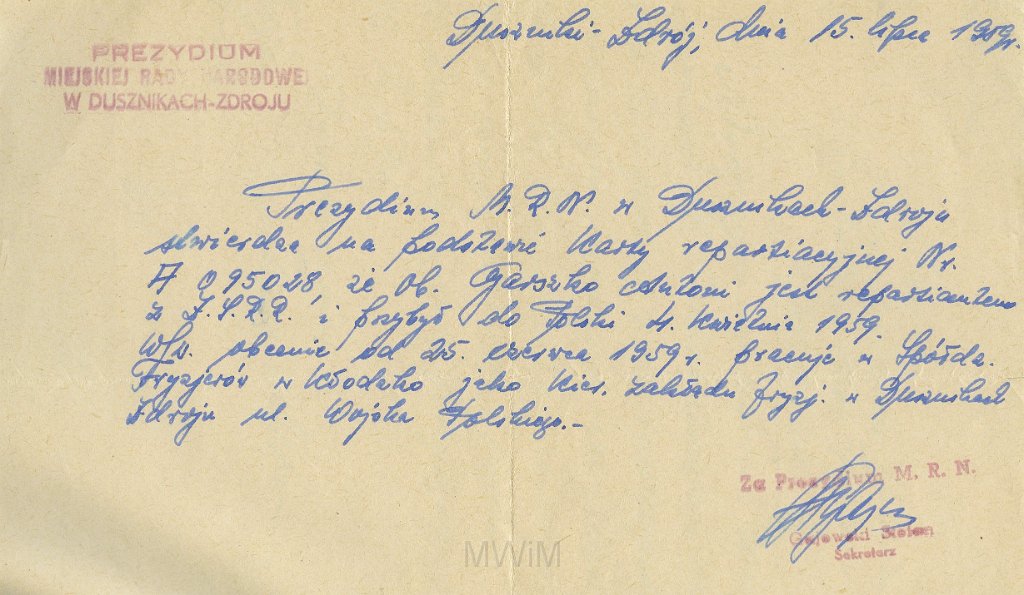 Duszniki-Zdrój, dnia 15. lipca 1959r.
PREZYDIUM
MIEJSKIEJ RADY NARODOWEJ
W DUSZNIKACH-ZDROJU
Prezydium M.R.N. w Dusznikach-Zdroju
stwierdza na podstawie Karty repatriacyjnej Nr.
095028, że Ob. Garszko Antoni jest repatriantem
z Z.S.R.R. i przybył do Polski 4. kwietnia 1959.
W/w. obecnie od 25. czerwca 1959r. pracuje w Spółdz.
Fryzjerów w Kłodzko jako Kier. zakładu fryzj. w Dusznikach
Zdroju ul. Wojska Polskiego.-
Za Prezydium M. R. N.
Gajewski Stefan
Sekretarz
MWiM